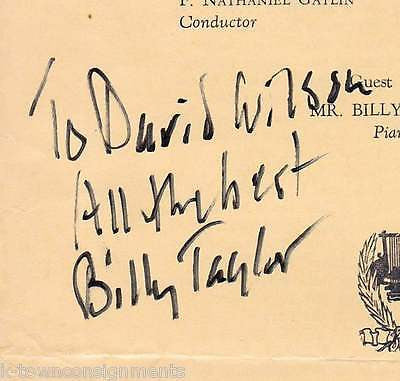 F. NATHANIEL GATLIN
Conductor
Guest
MR. BILLY
Pian
To David Wilson
All the best
Billy Taylor
k-townconsignments